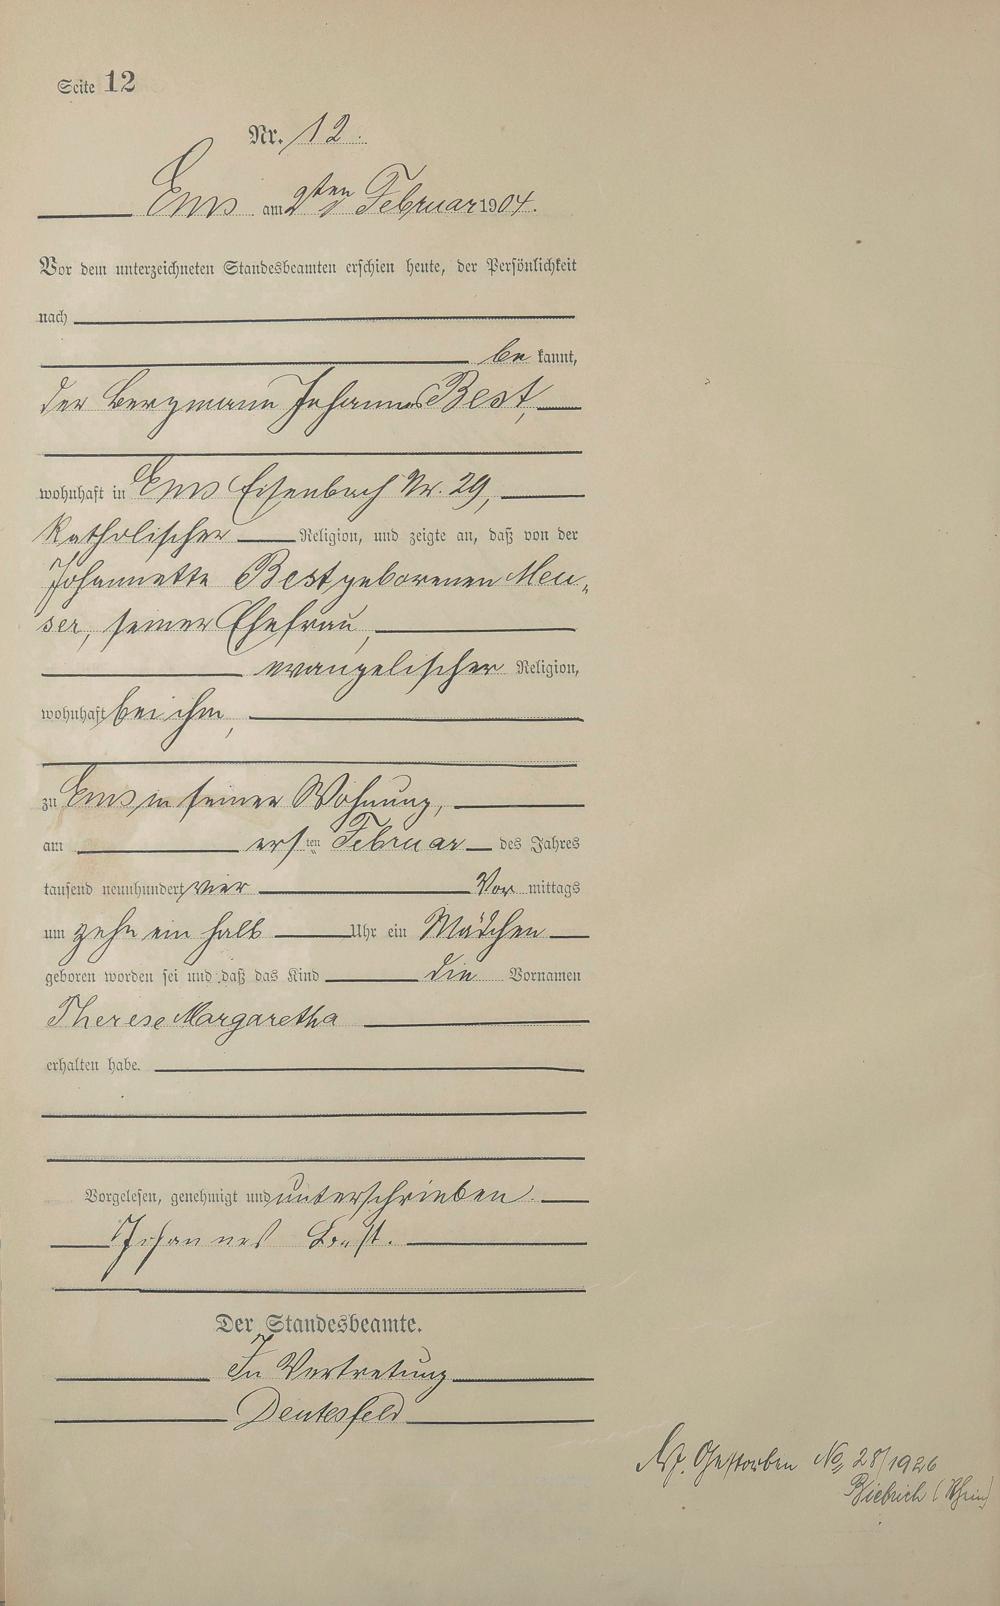 Seite 12
Nr. 12.
Ems am 2ten Februar 1904.
Vor dem unterzeichneten Standesbeamten erschien heute, der Persönlichkeit
nach
be kannt,
der Bergmann Johannes Best,
wohnhaft in Ems Eisenbach Nr. 29,
katholischer Religion, und zeigte an, daß von der
Johannette Best geborenen Meu„
ser, seiner Ehefrau,
evangelischer Religion,
wohnhaft bei ihm,
zu Ems in seiner Wohnung,
am ersten Februar des Jahres
tausend neunhundert vier Vor mittags
um zehn ein halb Uhr ein Mädchen
geboren worden sei und daß das Kind die Vornamen
Therese Margaretha
erhalten habe.
Vorgelesen, genehmigt und unterschrieben.
Johannes Best.
Der Standesbeamte.
In Vertretung
Deutesfeld
Gestorben No 28/1926
Biebrich (Rhein)